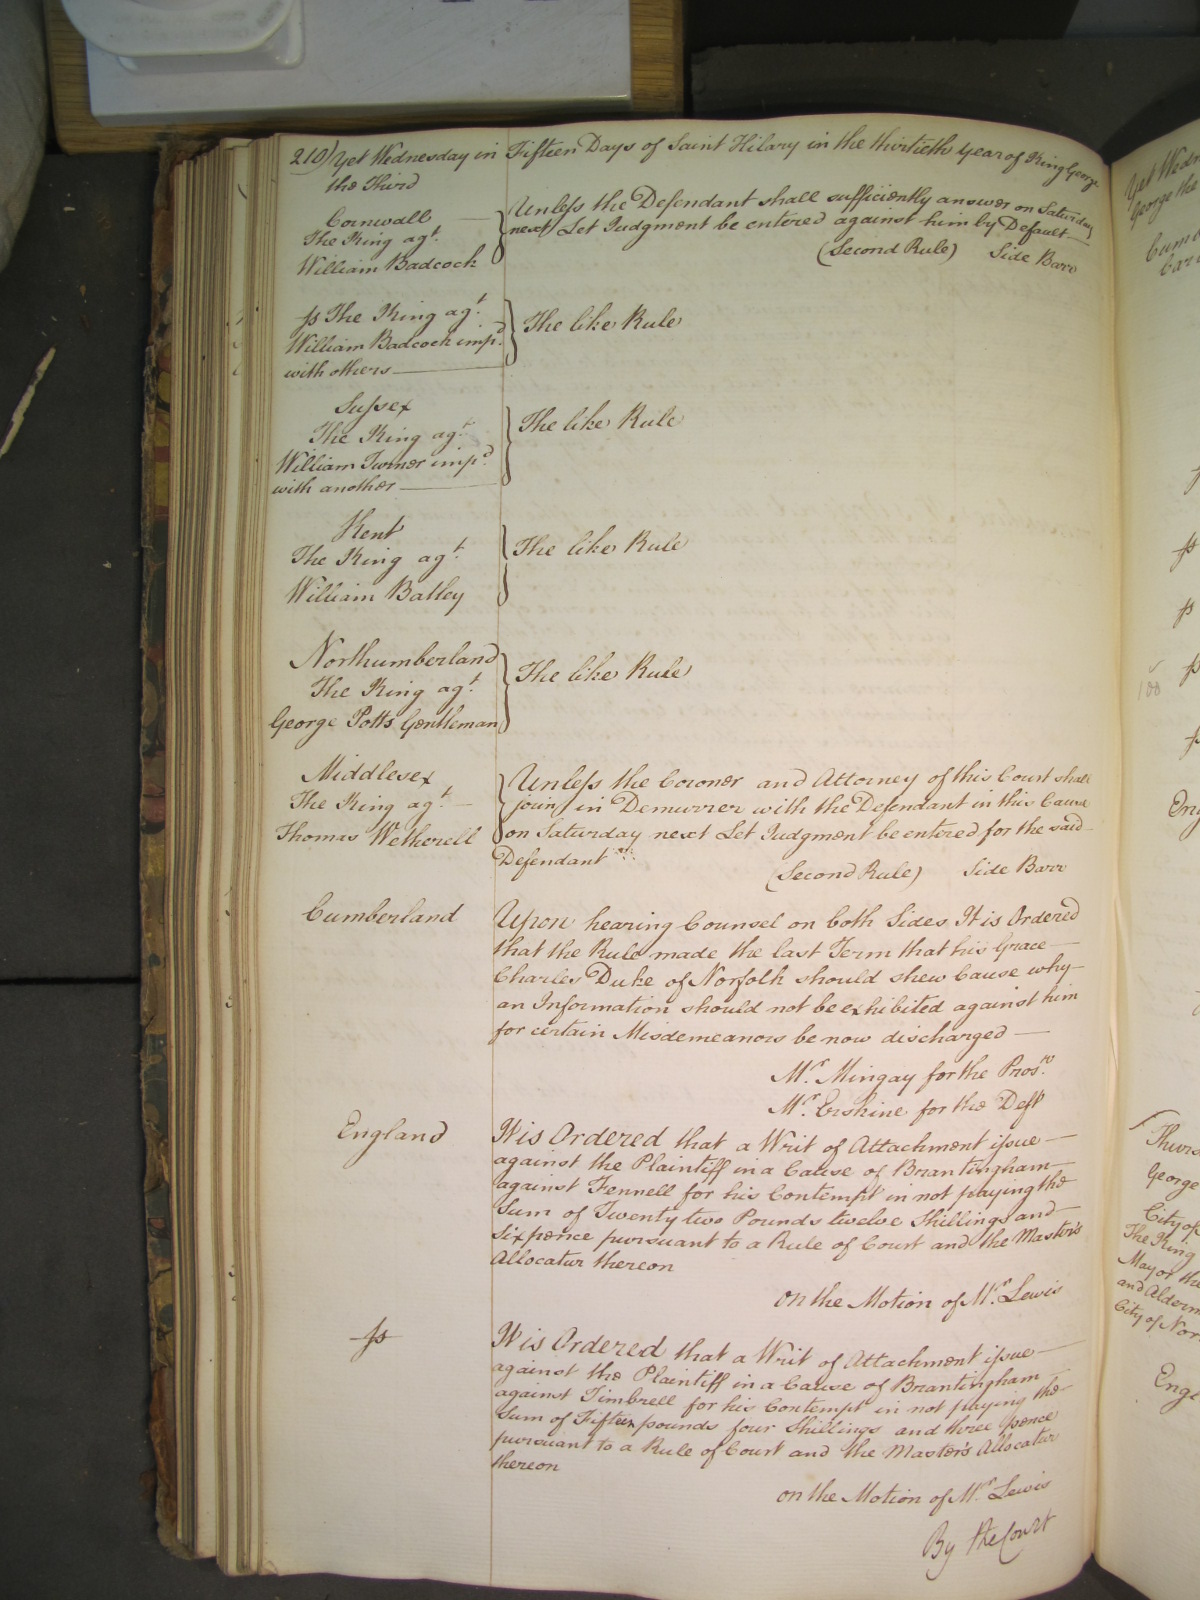 210) Yet Wednesday in Fifteen Days of Saint Hilary in the thirtieth year of King George
the Third
Cornwall
The King agt.
William Badcock
Unless the Defendant shall sufficiently answer on Saturday
next Let Judgment be entered against him by Default
(Second Rule) Side Barr
ss The King agt.
William Badcock impd.
with others
The like Rule
Sussex
The King agt.
William Turner impd.
with another
The like Rule
Kent
The King agt.
William Batley
The like Rule
Northumberland
The King agt.
George Potts Gentleman
The like Rule
Middlesex
The King agt.
Thomas Wetherell
Unless the Coroner and Attorney of this Court shall
join in Demurrer with the Defendant in this Cause
on Saturday next Let Judgment be entered for the said
Defendant
(Second Rule) Side Barr
Cumberland
Upon hearing Counsel on both Sides It is Ordered
that the Rule made the last Term that his Grace
Charles Duke of Norfolk should shew Cause why
an Information should not be exhibited against him
for certain Misdemeanors be now discharged
Mr. Mingay for the Prosr.
Mr. Erskine for the Deft
England
It is Ordered that a Writ of Attachment issue
against the Plaintiff in a Cause of Brantingham
against Fennell for his Contempt in not paying the
Sum of Twenty two Pounds twelve Shillings and
Sixpence pursuant to a Rule of Court and the Master's
Allocatur thereon
on the Motion of Mr. Lewis
ss
It is Ordered that a Writ of Attachment issue
against the Plaintiff in a Cause of Brantingham
against Timbrell for his Contempt in not paying the
Sum of Fifteen pounds four Shillings and three pence
pursuant to a Rule of Court and the Master's Allocatur
thereon
on the Motion of Mr. Lewis
By the Court
George the
ss
ss
ss
100
George
City of
The King
Mayor the
City of Nor